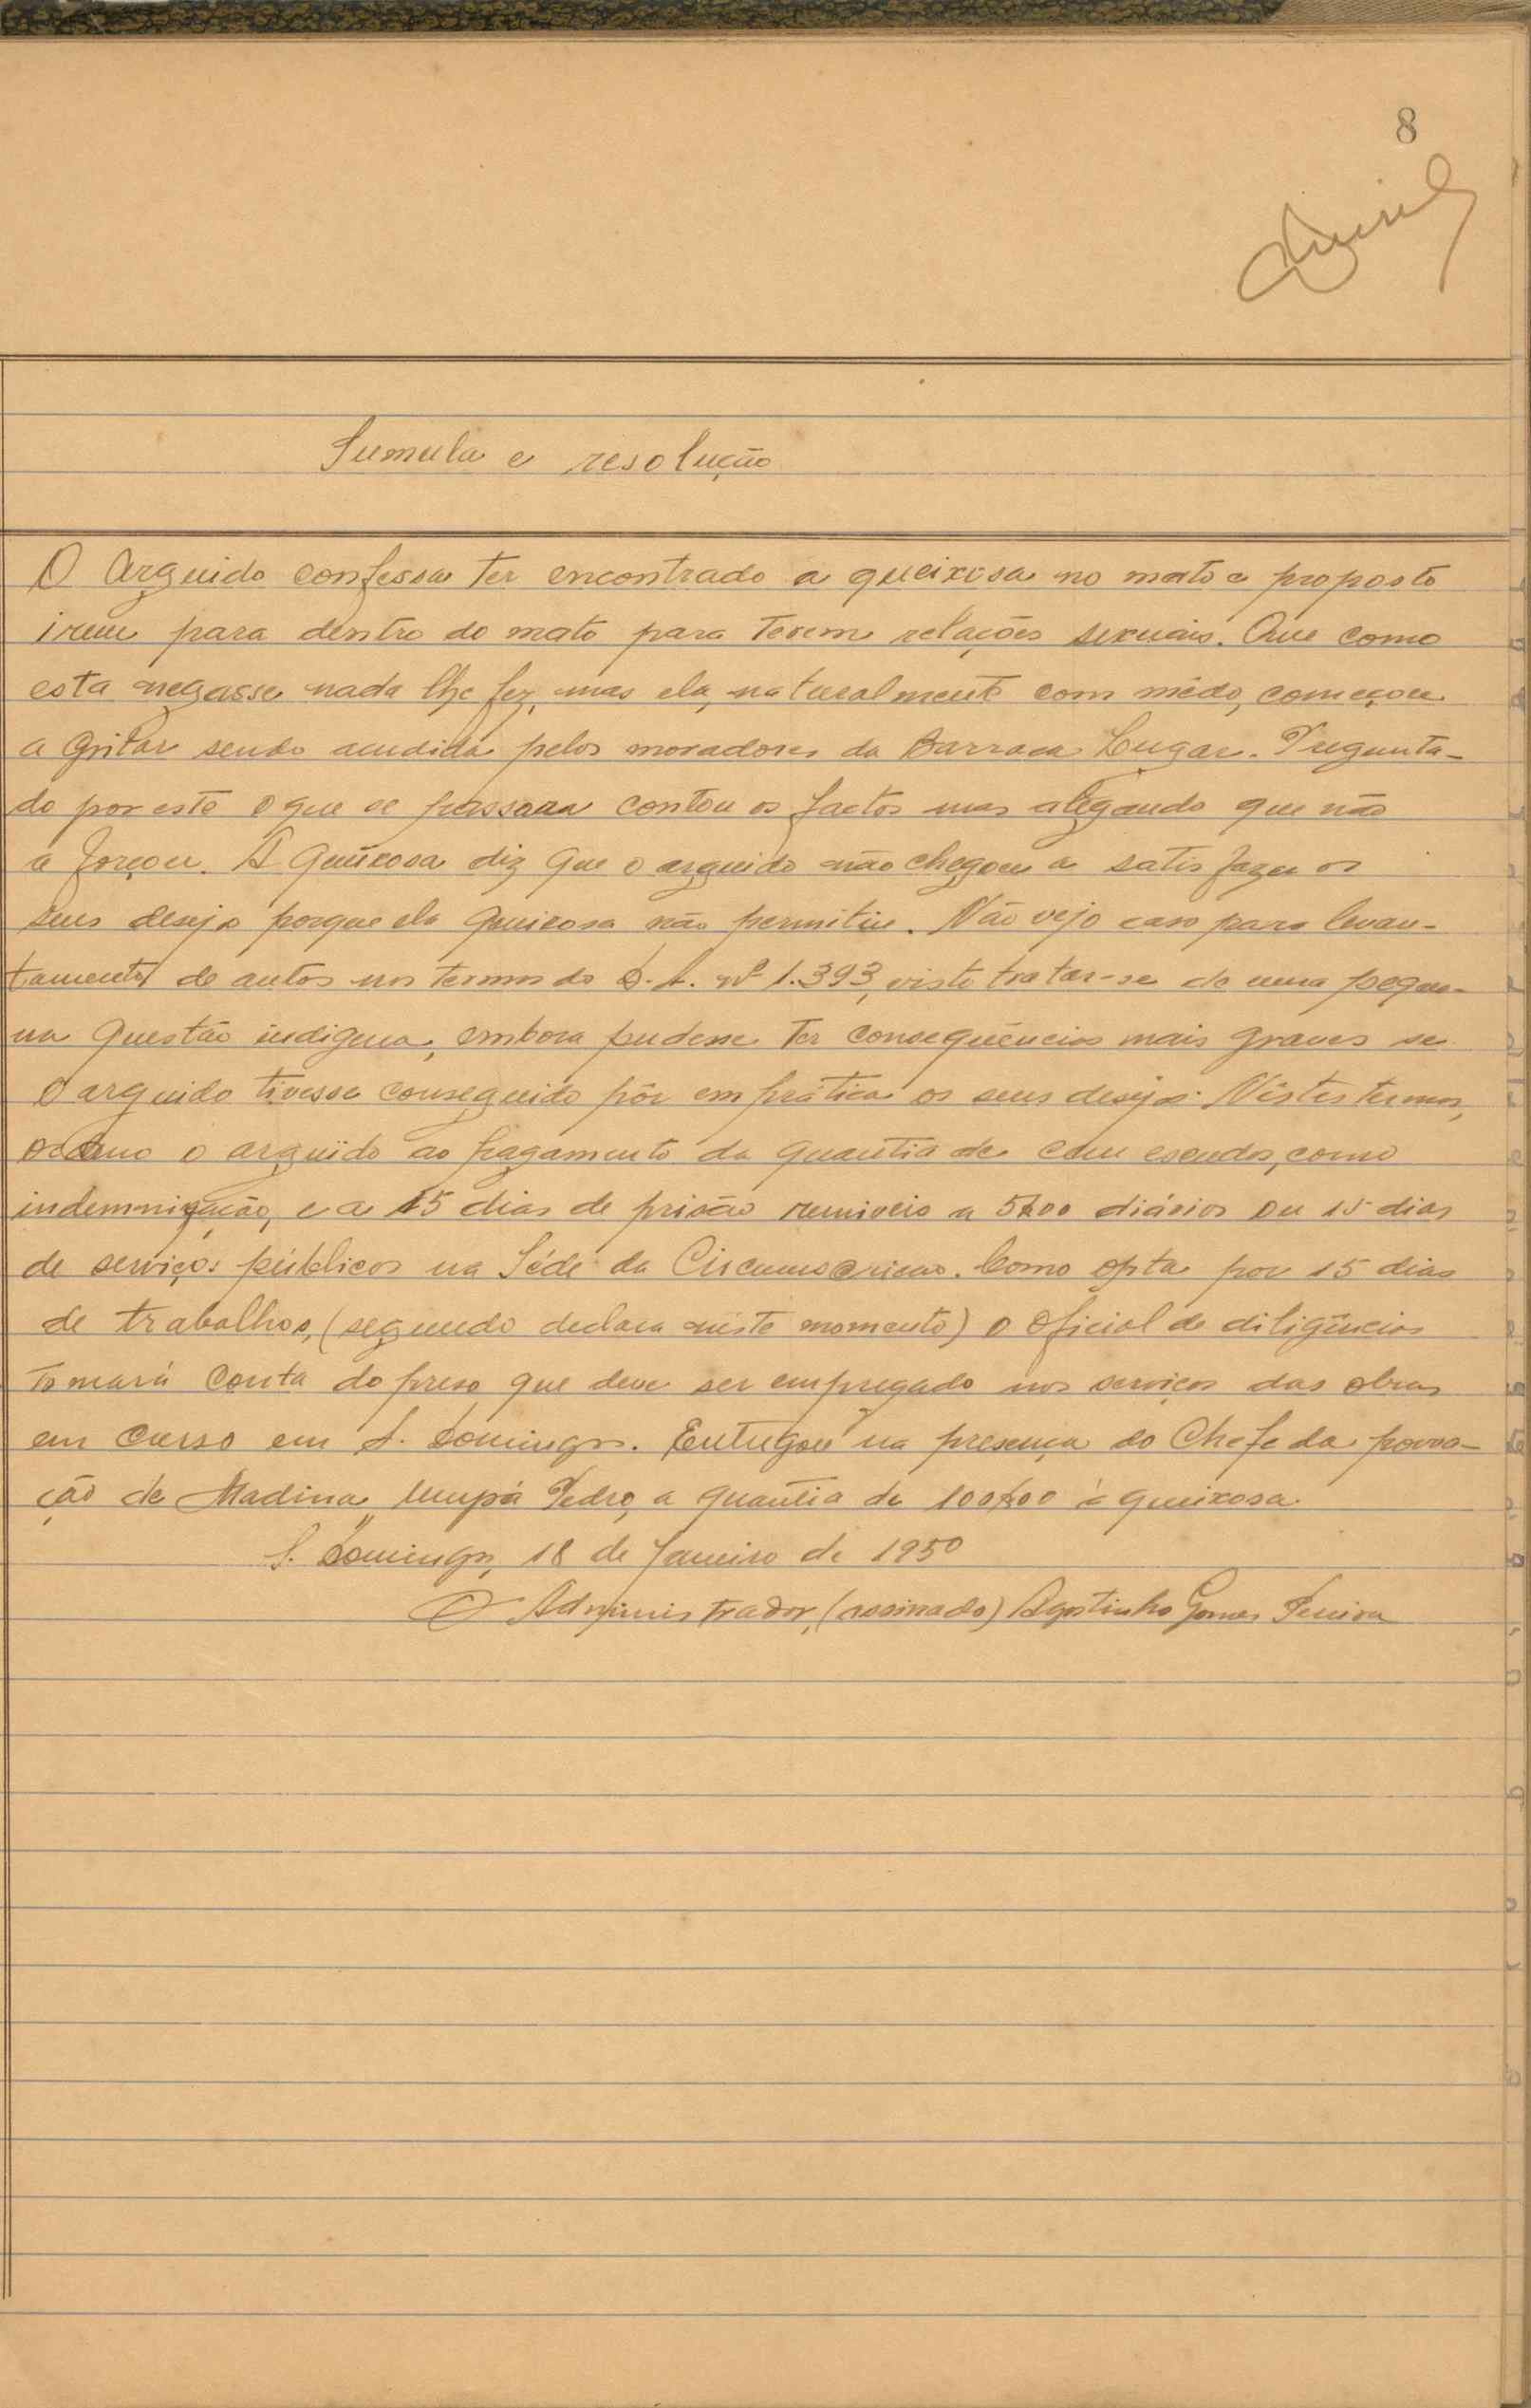 8
Sumula e resolução
O Arguido confessa ter encontrado a queixosa no mato e proposto
irem para dentro do mato para terem relações sexuais. Que como
esta negasse nada lhe fez, mas ela, naturalmente com mêdo, começou
a gritar sendo acudida pelos moradores da Barraca Lugar. Pregunta-
do por este o que se passara contou os factos mas alegando que não
a forçou. A queixosa diz que o arguido não chegou a satisfazer os
seus desejos porque ela queixosa não permitiu. Não vejo caso para levan-
tamento de autos nos termos do nº 1.393, visto tratar-se de uma peque-
na questão indígena, embora pudesse ter consequências mais graves se
o arguido tivesse conseguido pôr em prática os seus desejos. Nêstes termos,
o arguido ao pagamento da quantia de cem escudos, como
indemnização, e a 15 dias de prisão remíveis a 5$00 diários ou 15 dias
de serviços públicos na Séde da Como opta por 15 dias
de trabalhos, (segundo declara nêste momento) o Oficial de diligências
tomará conta do preso que deve ser empregado nos serviços das obras
em curso em S. Domingos. Entregou na presença do Chefe da povoa-
ção de Madina, Pedro, a quantia de 100$00 à queixosa.
S. Domingos, 18 de Janeiro de 1950
O Administrador, (assinado) Agostinho Gomes Pereira